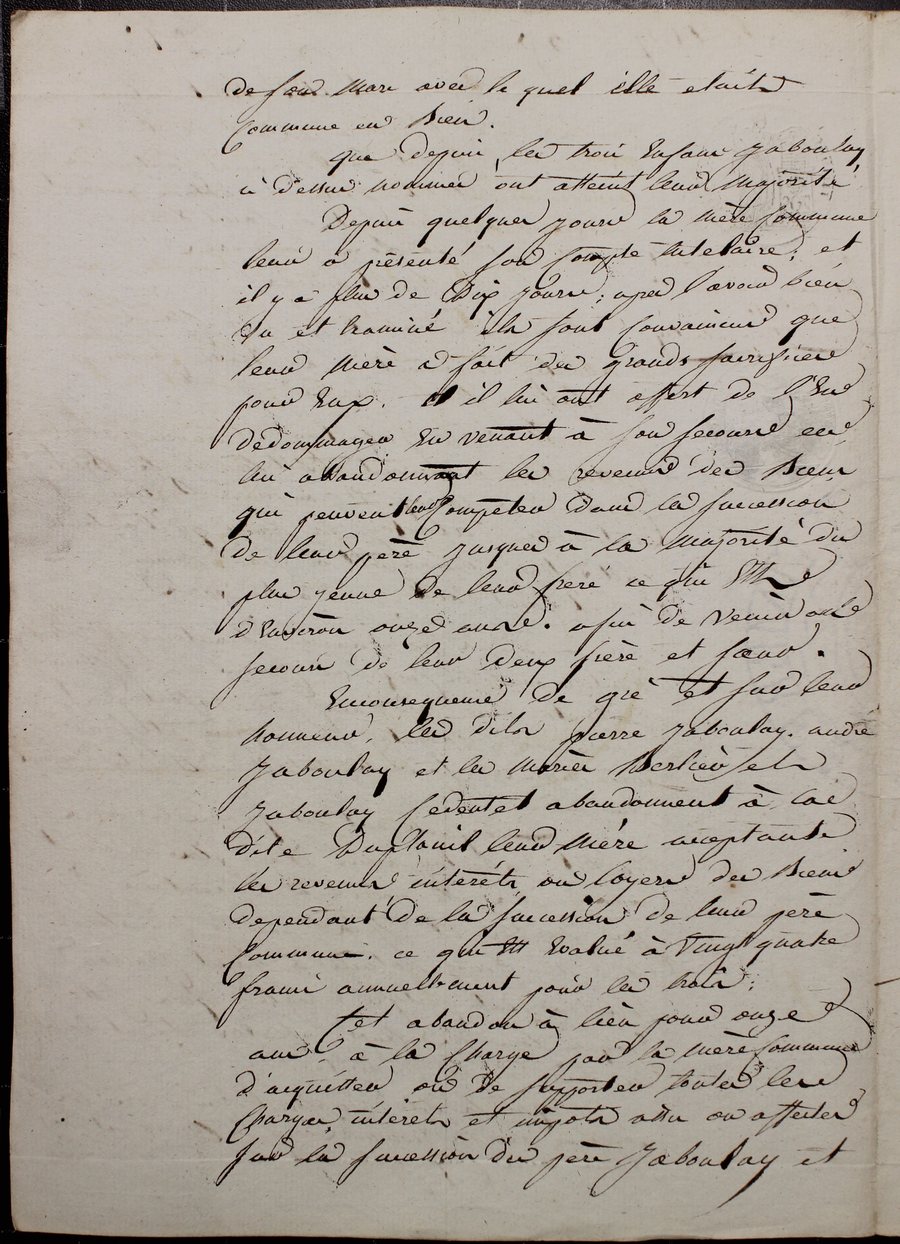 de son mari avec le quel elle etaite
Commune en Bien.
que depuis les trois Enfans Jaboulay
ci dessus nommés ont atteint leur Majorité,
Depuis quelques jours la mère Commune
leur a présenté son Compte tutelaire, et
il y a plus de Dix jours, apres l'avoir bien
Vu et Examiné ils sont Convaincus que
leur mère a fait des grands sacrifices
pour Eux. et ils lui ont offert de l'En
dedommager En venant à son secours en
lui abandonnant les revenus des Biens
qui peuvent leur Competer dans la succession
de leur père jusques à la Majorité du
plus jeune de leur frère ce qui Est
d'Environ onze ans. afin de venir au
secours de leur deux frère et sœur.
Enconsequence de gré et sur leur
honneur, les dits pierre Jaboulay. andré
Jaboulay et les mariés et
Jaboulay Cedent et abandonnent à la
dite leur Mère acceptante
les revenus intérêts ou loyers des Biens
dependant de la succession de leur père
Commun. ce qui Est Evalué à Vingt quatre
francs annuellement pour les trois;
Cet abandon à lieu pour onze
ans, à la Charge par la mère Commune
d'acquitter ou de supporter toutes les
Charges, intérêts et impots ou affectés
sur la succession du père Jaboulay et